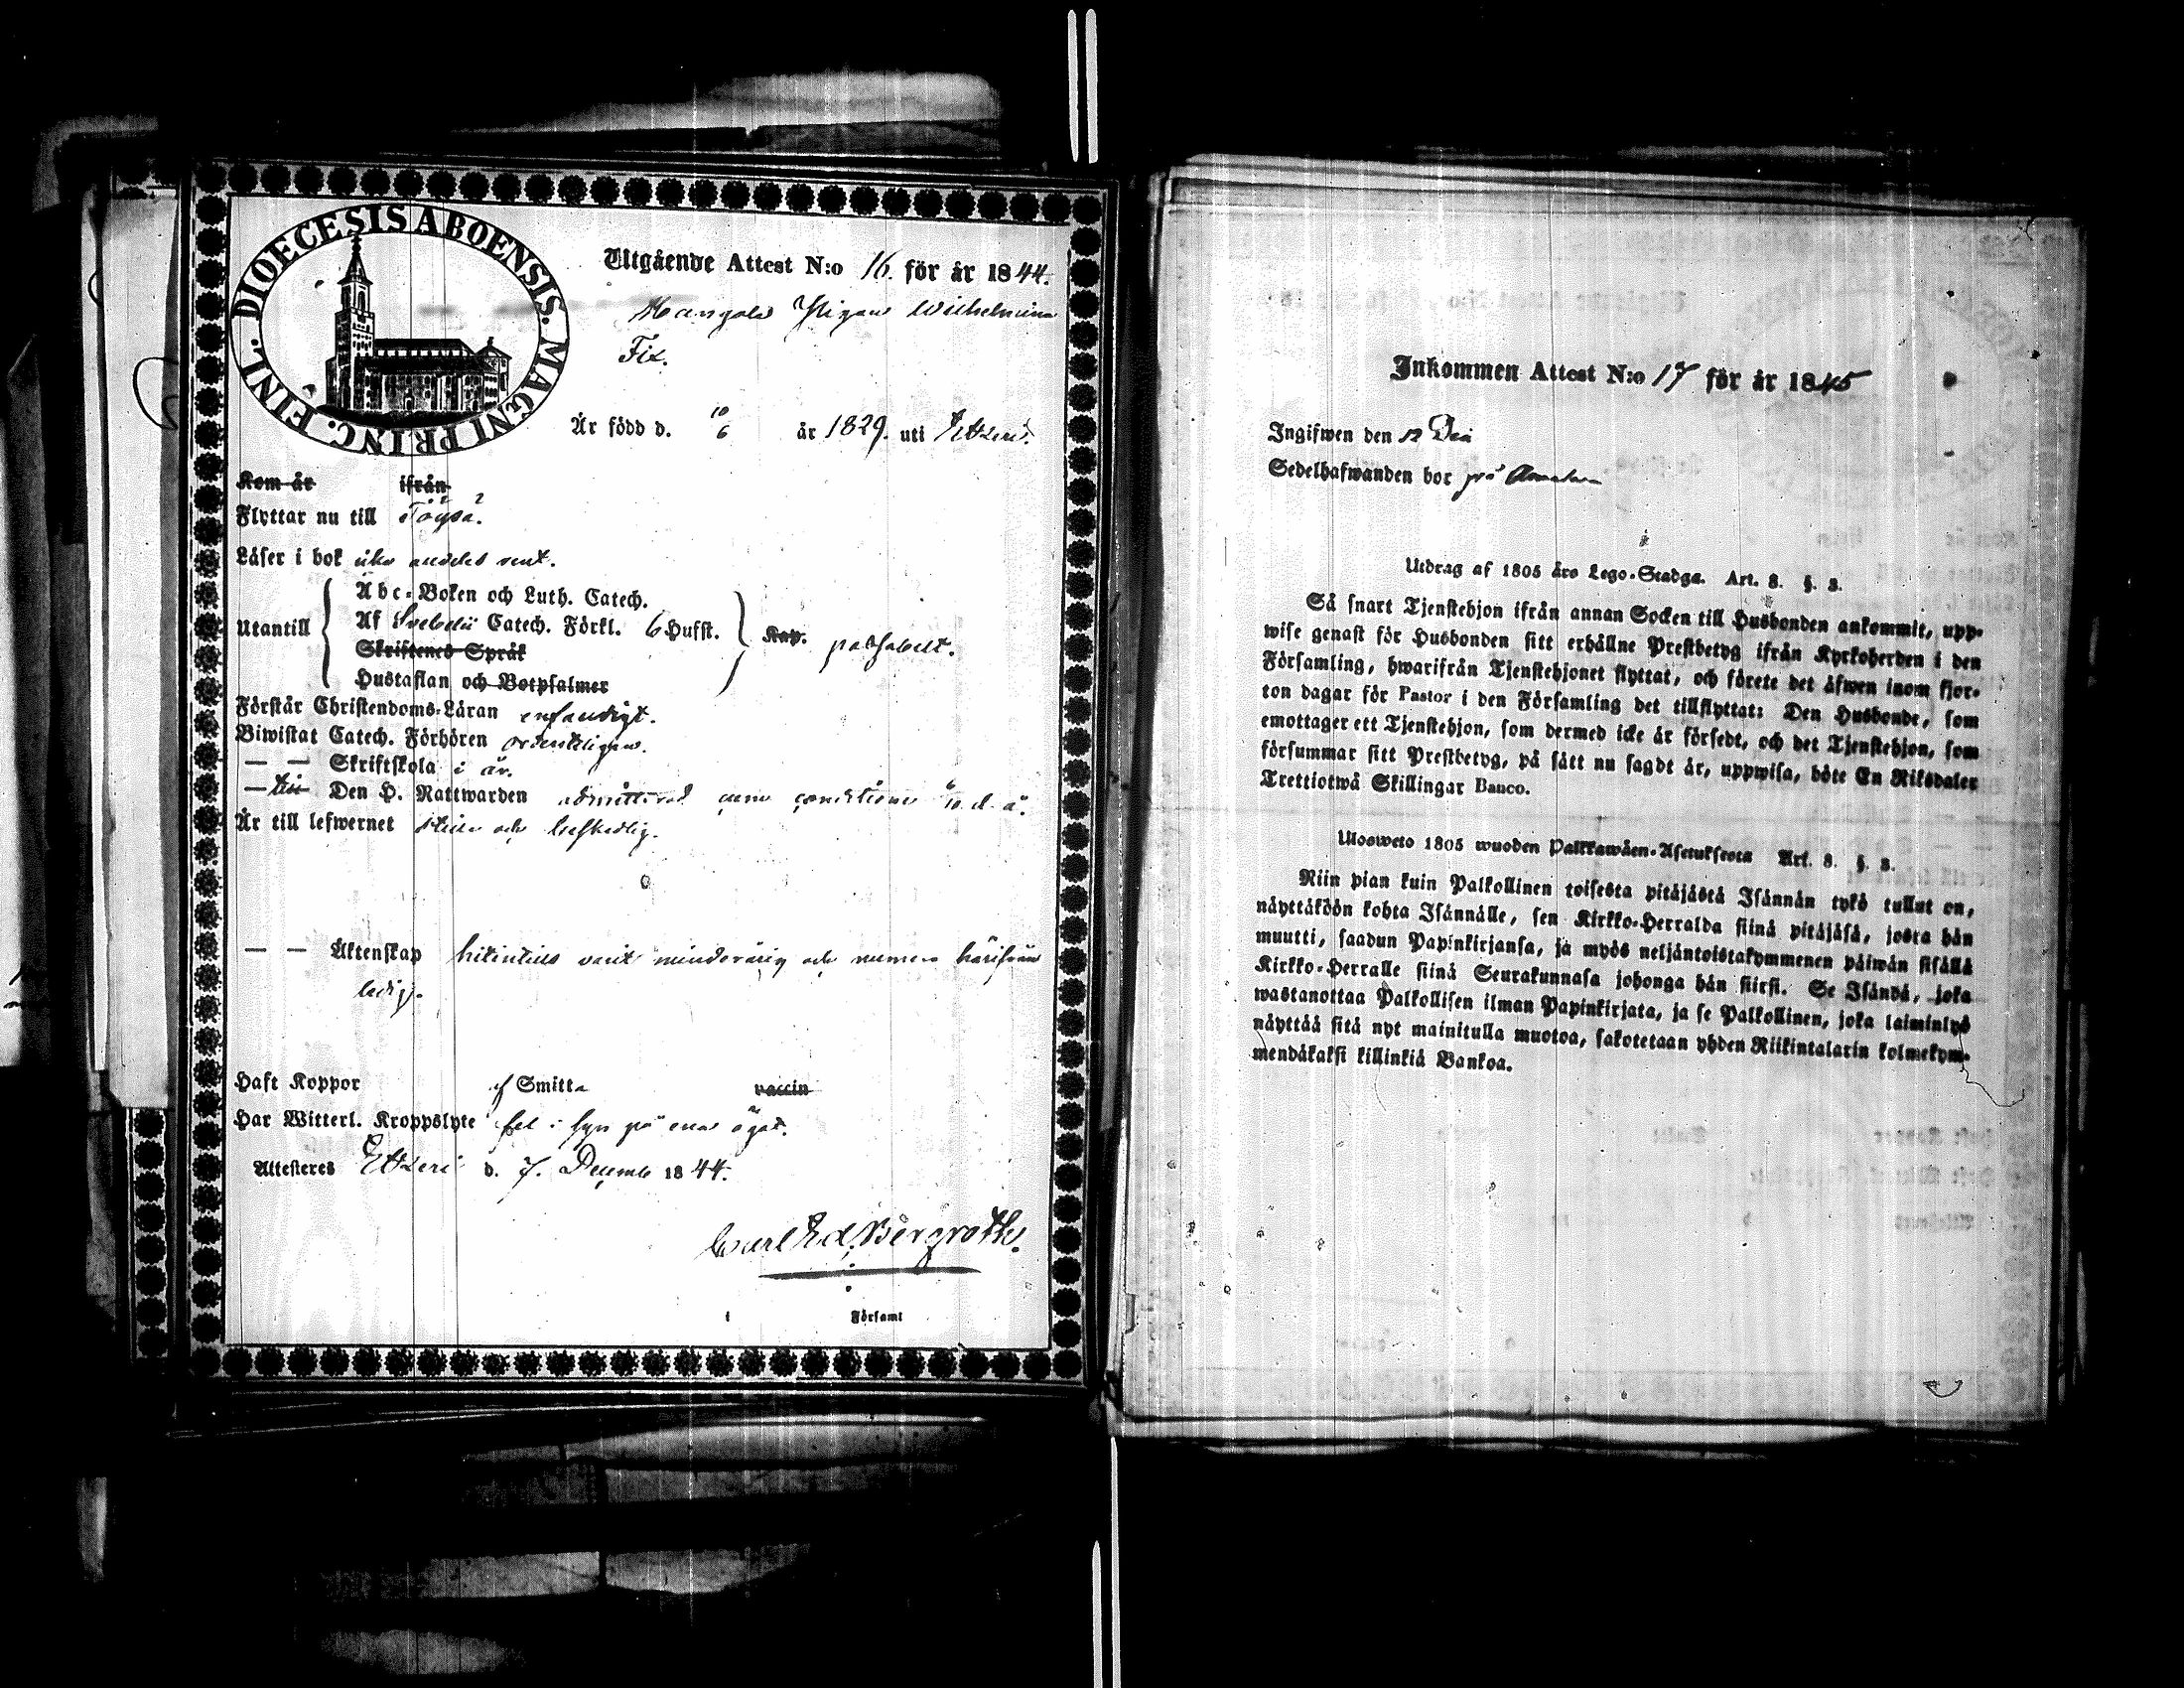 DIOECESIS ABOENSIS. MAGNI PRINC. FINL.
Utgående Attest N:o 16. för år 1844.
Pigan Wilhelmina
Fix.
Är född d. 10/6 år 1829. uti Etseri.
Kom år ifrån
Flyttar nu till Töysä.
Läser i bok
Utantill
Abc-Boken och Luth. Catech.
Af Svebelii Catech. Förkl. 6 Hufst.
Skriftenes Språk
Hustaflan och Botpsalmer
Kap. passabelt.
Förstår Christendoms-Läran enfaldigt.
Biwistat Catech. Förhören ordenteligen.
— — Skriftskola i år.
— till Den H. Nattwarden admitterad d. å.
Är till lefwernet stilla och beskedlig.
— — Äktenskap hitintills varit minderårig och numera härifrån
ledig.
Haft Koppor af Smitta vaccin
Har Witterl. Kroppslyte fel i syn på ena ögat.
Attesteres Etseri d. 7. Decemb 1844.
Carl Ed. Bergroth.
i Församl
Inkommen Attest N:o 17 för år 1845
Ingifwen den 12
Sedelhafwanden bor på
Utdrag af 1805 års Lego-Stadga. Art. 8. §. 3.
Så snart Tjenstehjon ifrån annan Socken till Husbonden ankommit, upp-
wise genast för Husbonden sitt erhållne Prestbetyg ifrån Kyrkoherden i den
Församling, hwarifrån Tjenstehjonet flyttat, och förete det äfwen inom fjor-
ton dagar för Pastor i den Församling det tillflyttat: Den Husbonde, som
emottager ett Tjenstehjon, som dermed icke är försedt, och det Tjenstehjon, som
försummar sitt Prestbetyg, på sätt nu sagdt är, uppwisa, böte En Riksdaler
Trettiotwå Skillingar Banco.
Ulosweto 1805 wuoden Palkkawäen-Asetuksesta Art. 8. §. 3.
Niin pian kuin Palkollinen toisesta pitäjästä Isännän tykö tullut on,
näyttäköön kohta Isännälle, sen Kirkko-Herralda siinä pitäjäsä, josta hän
muutti, saadun Papinkirjansa, ja myös neljäntoistakymmenen päiwän sisällä
Kirkko-Herralle siinä Seurakunnasa johonga hän siirsi. Se Isändä, joka
wastanottaa Palkollisen ilman Papinkirjata, ja se Palkollinen, joka laiminlyö
näyttää sitä nyt mainitulla muotoa, sakotetaan yhden Riikintalarin kolmekym-
mendäkaksi killinkiä Bankoa.